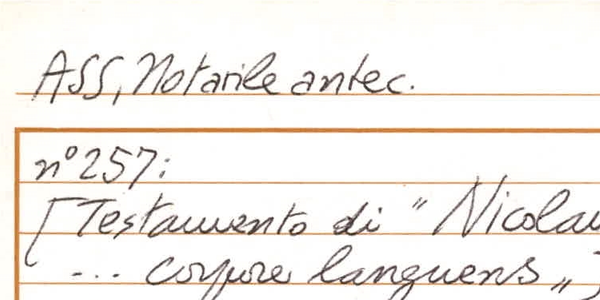 ASS, Notarile antec.
n° 257:
[Testamento di "Nicolau
... corpore languens"]